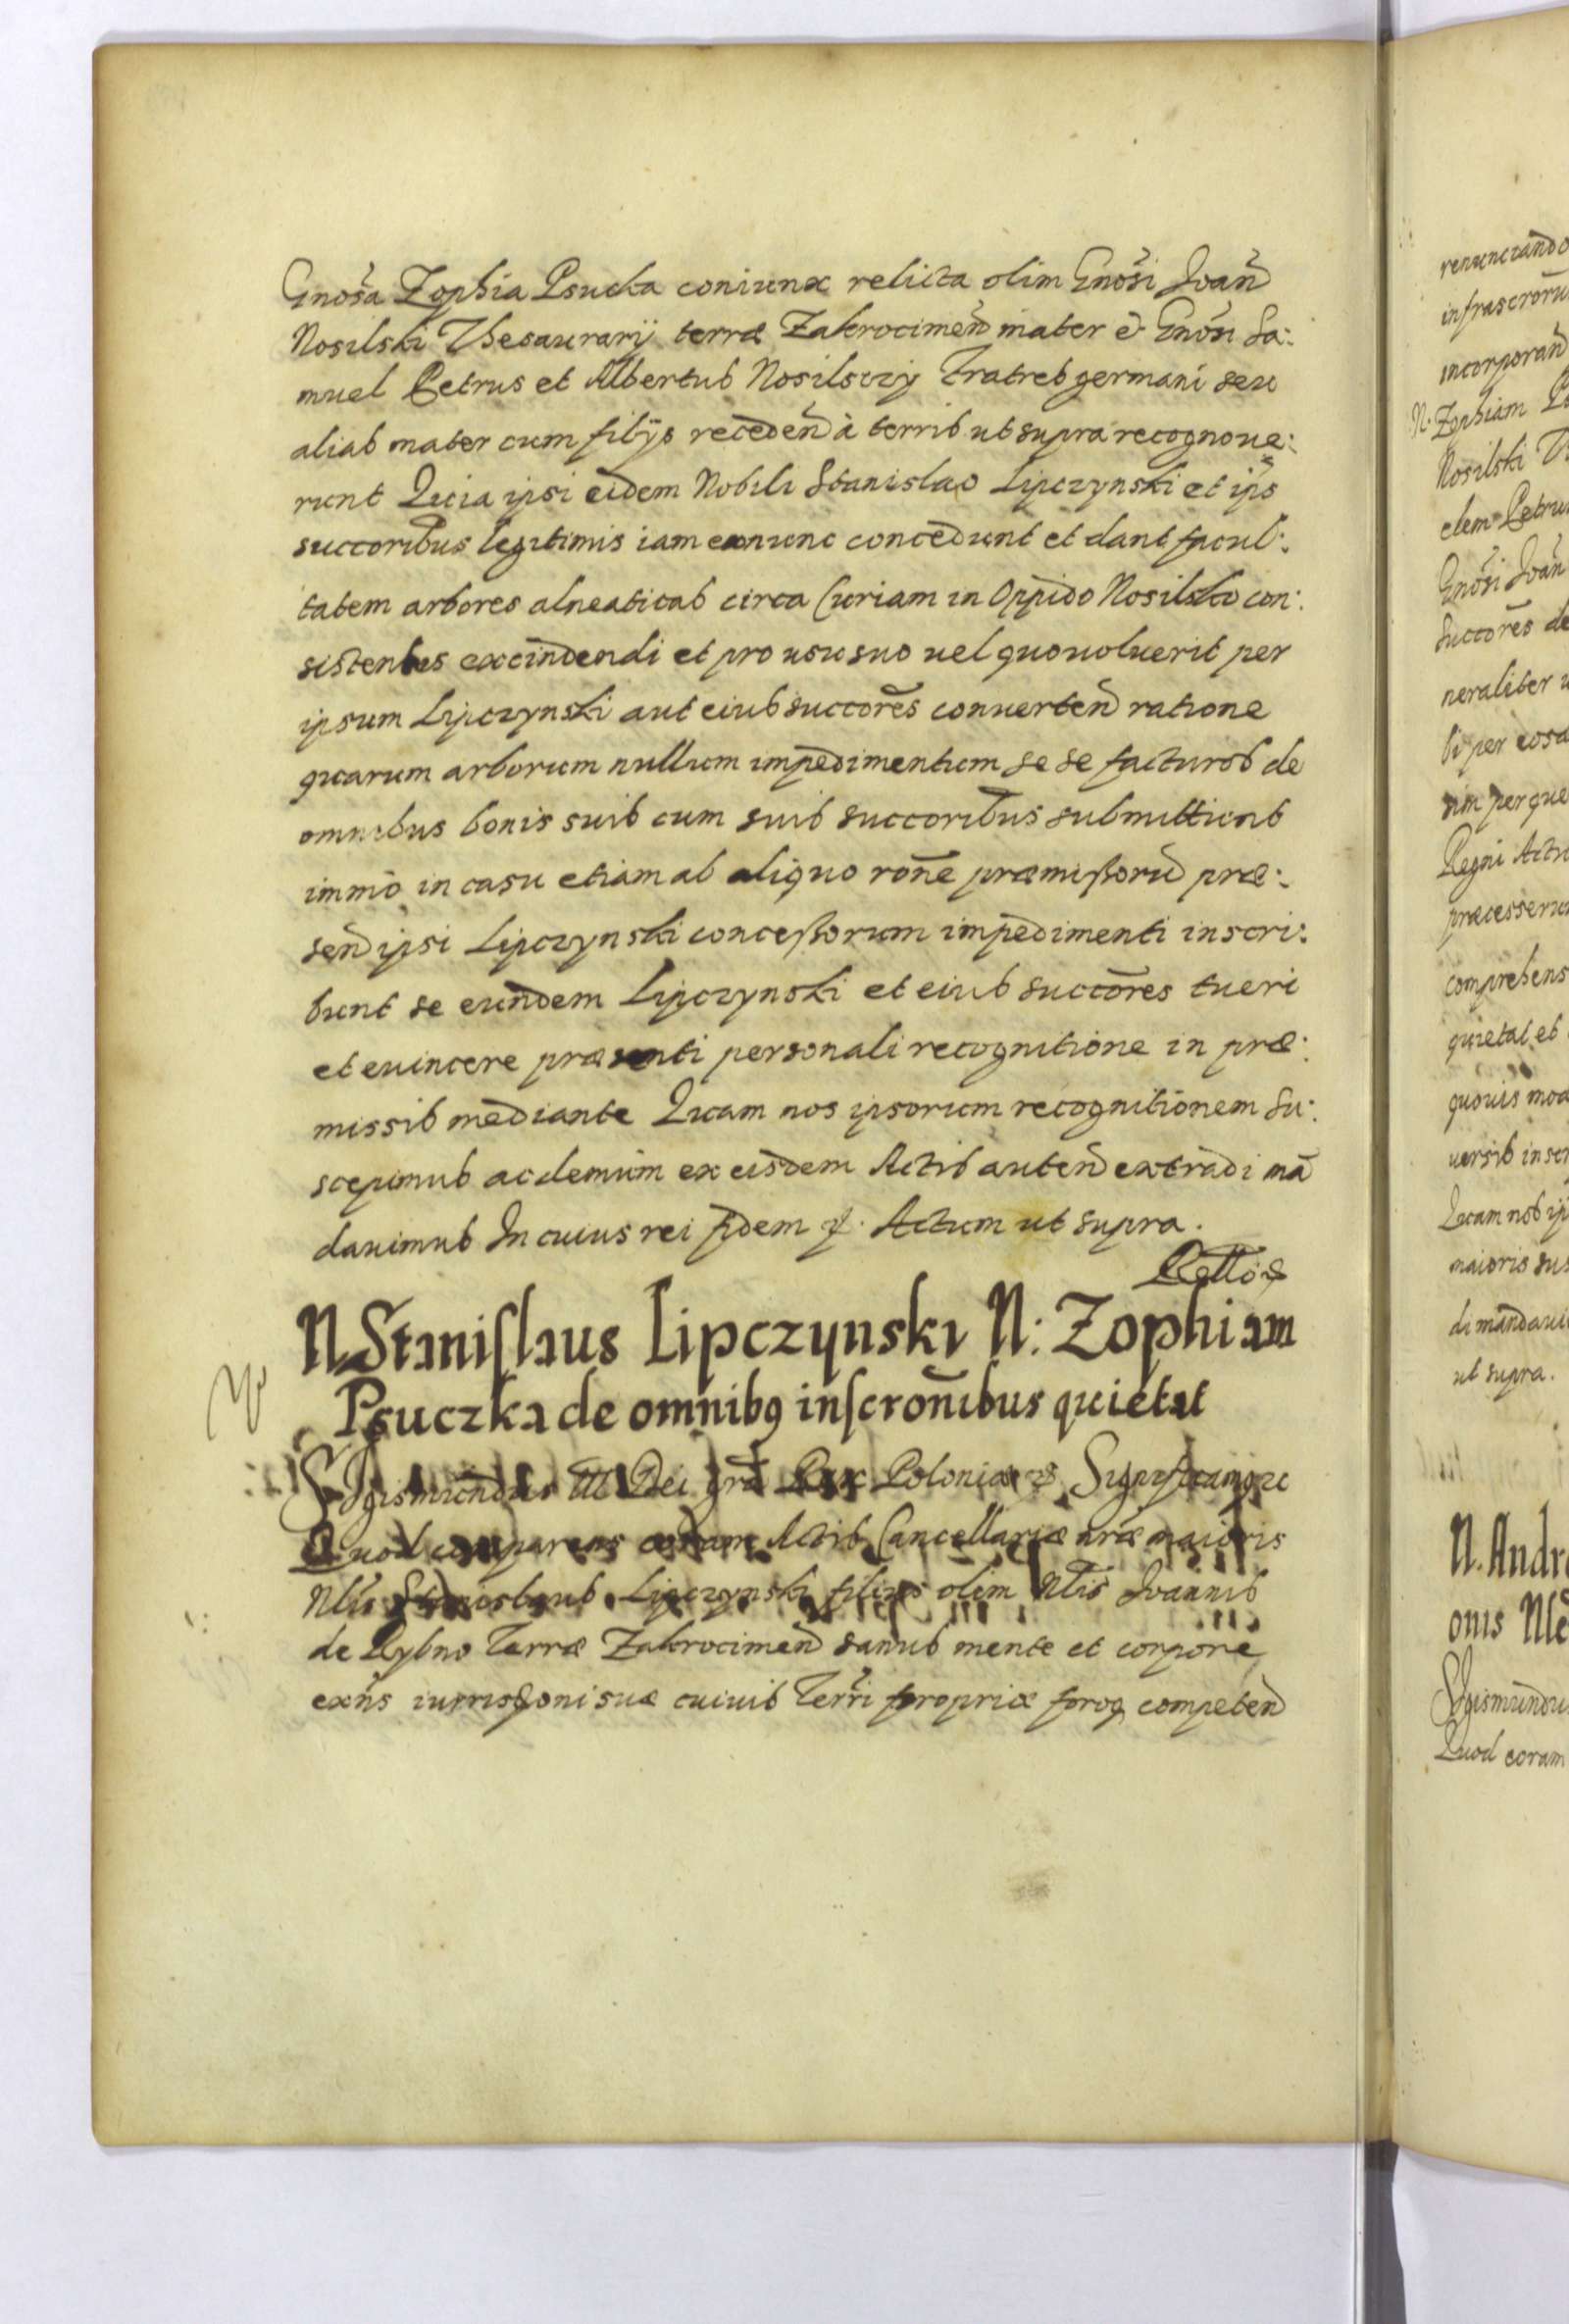 Gnos̃a Zophia Psucka coniunx relicta olim Gnos̃i Joañ
Nosilski Thesaurarij terræ Zakrocimeñ mater & Gnos̃i Sa:
muel Petrus et Albertus Nosilsczy Fratres germani seu
alias mater cum filijs recedeñ à terris ut supra recognoue:
runt Quia ipsi eidem Nobili Stanislao Lipczynski et ip̃s
succoribus legitimis iam exnunc concedunt et dant facul:
tatem arbores alneaticas circa Curiam in Oppido Nosilsko con:
sistentes excindendi et pro usu suo uel quouoluerit per
ipsum Lipczynski aut eius succores̃ conuerteñ ratione
quarum arborum nullum impedimentum se se facturos de
omnibus bonis suis cum suis succoribus submittunt
immo in casu etiam ab aliquo roñe præmissorũ præ:
señ ipsi Lipczynski concessorum impedimenti inscri:
bunt se eundem Lipczynski et eius succores̃ tueri
et euincere præsenti personali recognitione in præ:
missis mediante Quam nos ipsorum recognitionem su:
scepimus ac demum ex eisdem Actis auteñ extradi mã
dauimus In cuius rei fidem &. Actum ut supra.
N Stanislaus Lipczynski N: Zophiam
Psuczka de omnibꝯ inscroñibus quietat
Sigismundus III Dei grã Rex Poloniæ & Significamus
Quod comparens coram Actis Cancellariæ nr̃æ maioris
Nb̃lis Stanislaus Lipczynski filius olim Nb̃lis Joannis
de Rybno Terræ Zakrocimeñ sanus mente et corpore
exñs iurisdoni suæ cuiuis Terri propriæ foroq competeñ
renunciando
infrascrorũ
incorporañ
N. Zophiam
Nosilski
elem Petru
Gnos̃i Joañ
succores̃ de
neraliter
bi per eosd
um per que
Regni Actu
præcesseru
comprehens
quietat et
quouis mod
uersis inscr
Quam nos ip
maioris sus
di mandaui
ut supra.
N. Andre
onis
Sigismundu
Quod coram